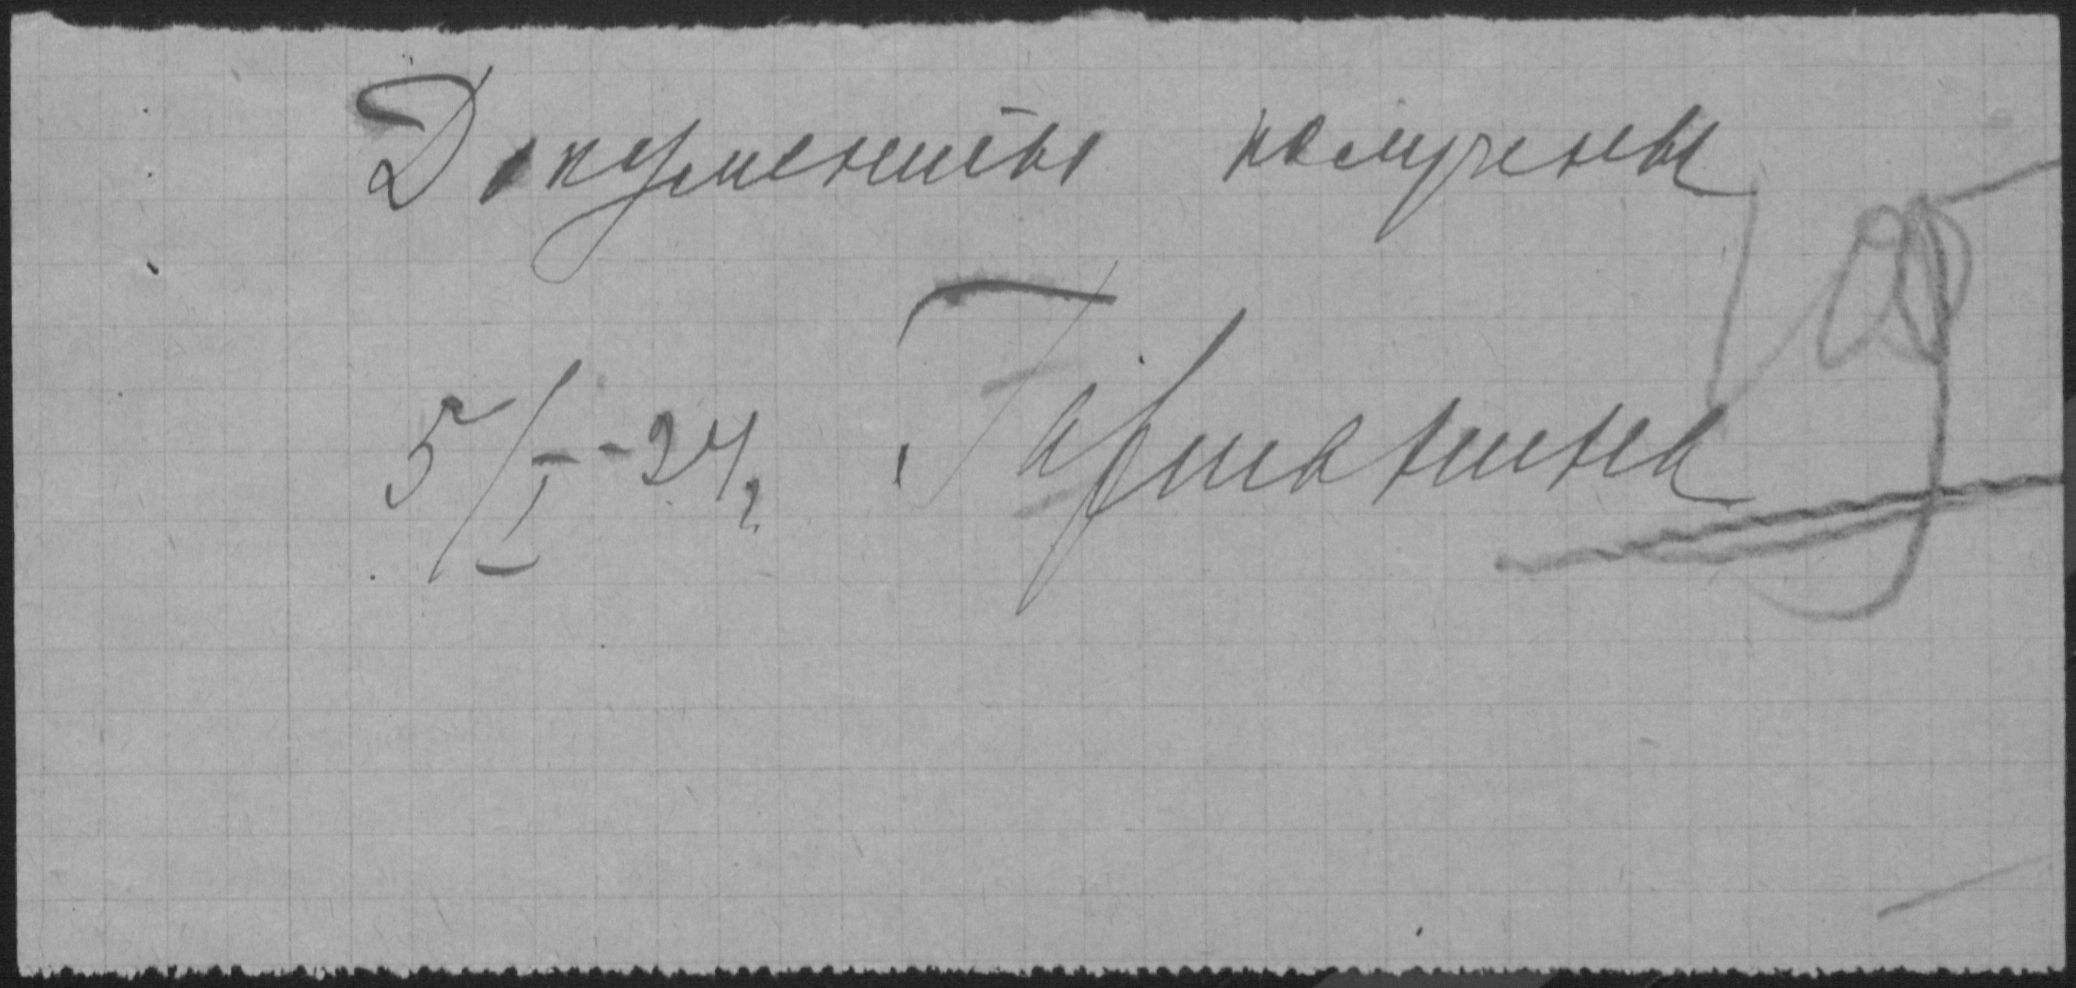 Документы получены
5/I-24 г. Гармашина